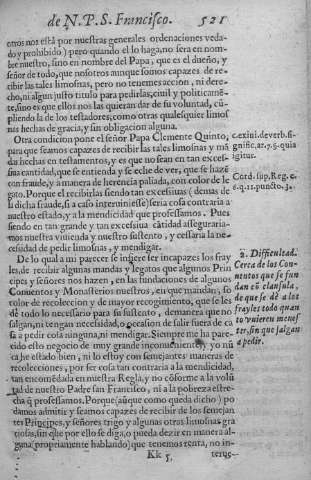 de N.P.S. Francisco. 521
otros nos està por nuestras generales ordenaciones veda-
do y prohibido) pero quando el lo haga, no sera en nom-
bre nuestro, sino en nombre del Papa, que es el dueño, y
señor de todo, que nosotros aunque somos capaces de re-
cibir las tales limosnas, pero no tenemos accion, ni dere-
cho, ni algun justo titulo para pedirlas, civil y politicamẽ-
te, sino es que ellos nos las quieran dar de su voluntad, cũ-
pliendo la de los testadores, como otras qualesquier limos
nas hechas de gracia, y sin obligacion alguna.
Otra condicion pone el señor Papa Clemente Quinto,
para que seamos capaces de recibir las tales limosnas y mã
da hechas en testamentos, y es que no sean en tan exces-
siua cantidad, que se entienda y se eche de ver, que se hazẽ
con fraude, y à manera de herencia paliada, con color de le
gato. Porque el recibirlas siendo tan excessiuas (demas de
la dicha fraude, si a caso interuiniesse) seria cosa contraria a
nuestro estado, y a la mendicidad que professamos. Pues
siendo en tan grande y tan excessiua cãtidad asseguraria-
mos nuestra viuienda y nuestro sustento, y cessaria la ne-
cessidad de pedir limosnas, y mendigar.
c. exiui. de verb. si-
gnific. ar. 7. §. quia
igitur.
Cord. sup. Reg. c.
6. q. 12. puncto. 3.
De lo qual a mi parecer se infiere ser incapazes los fray
les, de recibir algunas mandas y legatos que algunos Prin
cipes y señores nos hazen, en las fundaciones de algunos
Conuentos y Monasterios nuestros, en que mandan, so
color de recoleccion y de mayor recogimiento, que se les
dè todo lo necessario para su sustento, demanera que no
salgan, ni tengan necesidad, o ocasion de salir fuera de ca
sa a pedir cosa ninguna, ni mendigar. Siempre me ha pare-
cido esto negocio de muy grande inconueniente, y yo nũ
ca he estado bien, ni lo estoy con semejantes maneras de
recolecciones, por ser cosa tan contraria a la mendicidad,
tan encomẽdada en nuestra Regla, y no cõforme a la volũ
tad de nuestro Padre san Francisco, ni a la pobreza estre-
cha q̃ professamos. Porque (aũque como queda dicho) po
damos admitir y seamos capaces de recibir de los semejan
tes Principes, y señores trigo y algunas otras limosnas gra
ciosas, sin que por ello se diga, o pueda dezir en manera al
guna (propriamente hablando) que tenemos renta, no in-
2. Difficultad.
Cerca de los Con-
uentos que se fun
dan cũ clausula,
de que se dè a los
frayles todo quan
to vuieren menes
ter, sin que salgan
a pedir.
Kk 5 terue-